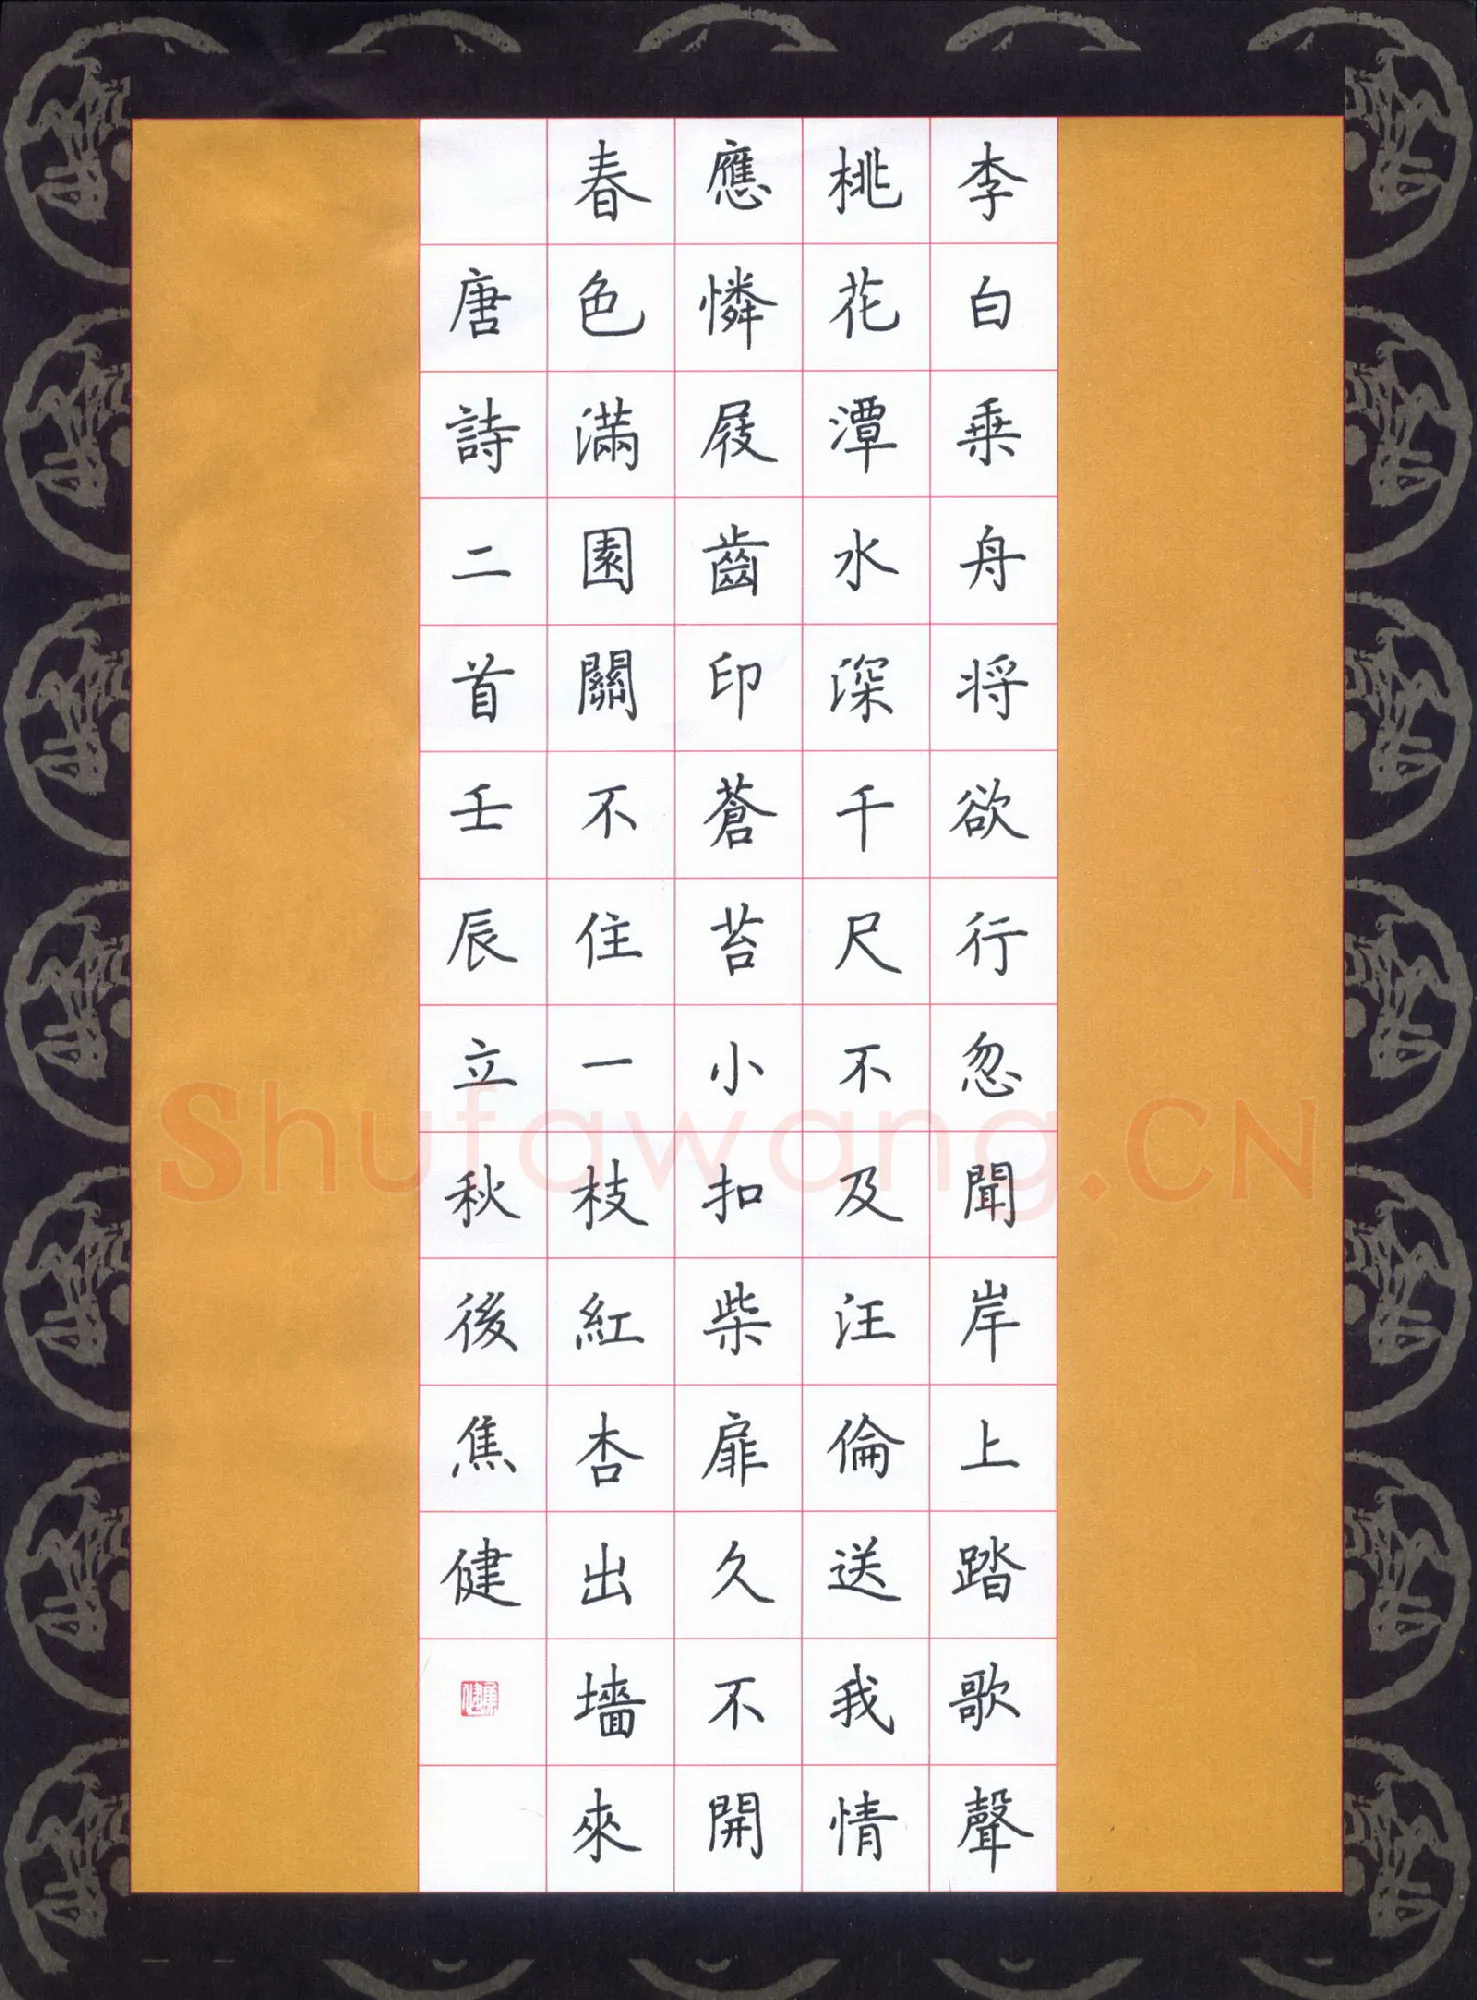 李白乗舟将欲行忽聞岸上踏歌聲
桃花潭水深千尺不及汪倫送我情
應憐屐齒印蒼苔小扣柴扉久不開
春色滿園關不住一枝紅杏出墻來
唐詩二首壬辰立秋後焦健
焦健
Shufawang.CN